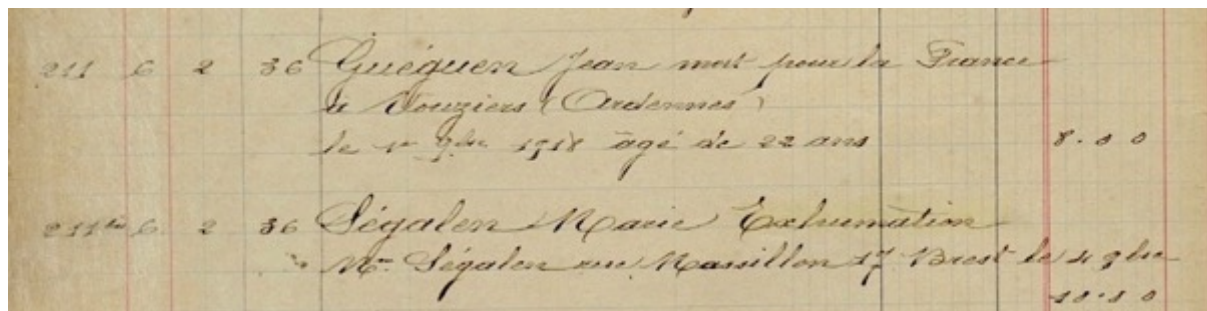 211 6 2 36 Guéguen Jean mort pour la France
à Vouziers (Ardennes)
le 1er 9bre 1918 âgé de 22 ans 8.00
211bis 6 2 36 Ségalen Marie Exhumation
Mr Ségalen rue Massillon 17 Brest le 4 9bre
10.10